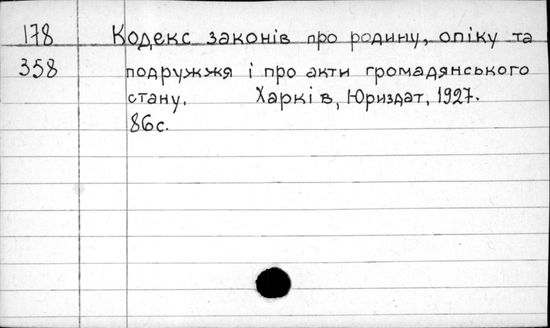 178 Кодекс законів про родину, опіку та
358 подружжя і про акти громадянського
стану. Харків, Юриздат, 1927.
86с.